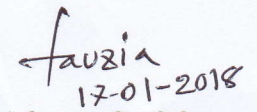 fauzia
17-01-2018